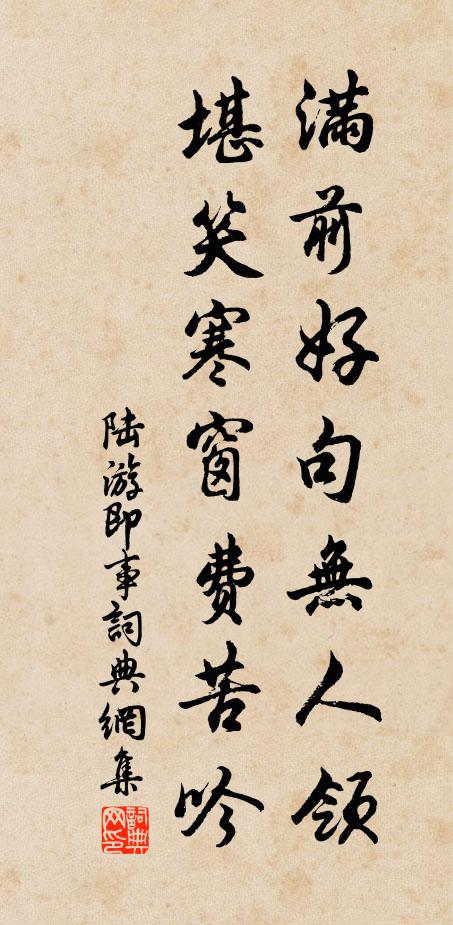 滿前好句無人領
堪笑寒窗費苦吟
陸游即事詞典網集
詞典网印